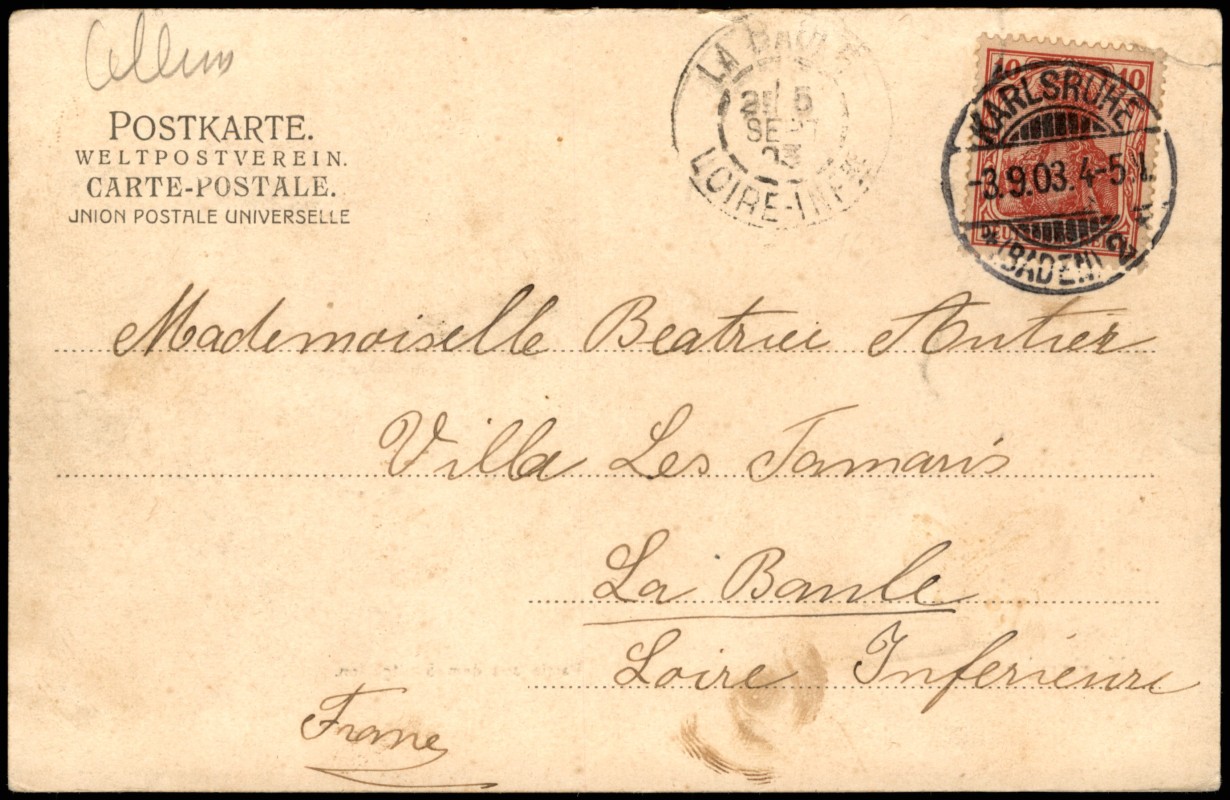 POSTKARTE.
WELTPOSTVEREIN.
CARTE-POSTALE.
UNION POSTALE UNIVERSELLE
LA BAULE
5
SEPT
03
LOIRE-INFRE
10 10
KARLSRUHE
-3.9.03.4-5N.
(BADEN) 2
Mademoiselle Beatrice Autier
Villa Les Tamaris
La Baule
Loire Inferieure
France